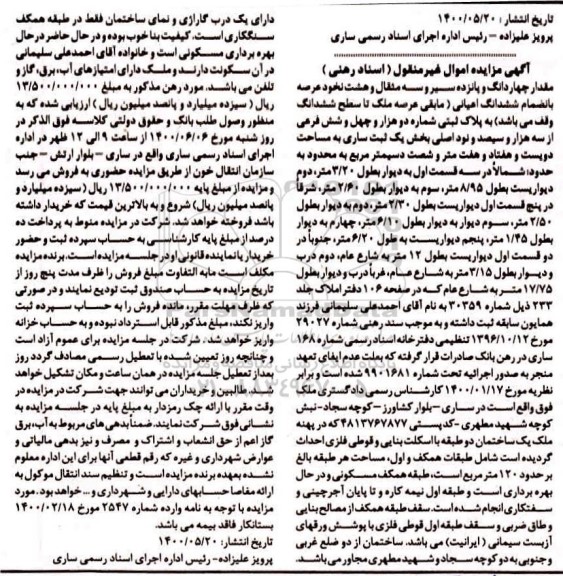 تاریخ انتشار : ۱۴۰۰/۰۵/۲۰
پرویز علیزاده – رئیس اداره اجرای اسناد رسمی ساری
آگهی مزایده اموال غیرمنقول ( اسناد رهنی )
مقدار چهار دانگ و پانزده سیر و سه مثقال و هشت نخود عرصه
بانضمام ششدانگ اعیانی ( مابقی عرصه ملک تا سطح ششدانگ
وقف می باشد) به پلاک ثبتی شماره دو هزار و چهل و شش فرعی
از سه هزار و سیصد و نود اصلی بخش یک ثبت ساری به مساحت
دویست و هفتاد و هفت متر و شصت دسیمتر مربع به محدود به
حدود: شمالاً در سه قسمت اول به دیوار بطول ۳/۲۰ متر، دوم
دیواریست بطول ۸/۹۵ متر، سوم به دیوار بطول ۲/۶۰ متر، شرقاً
در پنج قسمت اول دیواریست بطول ۲/۳۰ متر، دوم به دیوار بطول
۲/۵۰ متر، سوم به دیوار بطول ۶/۱۰ متر، چهارم به دیوار
بطول ۱/۴۵ متر، پنجم دیواریست به طول ۶/۲۰ متر، جنوباً در
دو قسمت اول دیواریست بطول ۱۲ متر به شارع عام، دوم درب
و دیوار بطول ۳/۱۵ متر به شارع عام، غرباً درب و دیوار بطول
۱۷/۷۵ متر به شارع عام که در صفحه ۱۰۶ دفتر املاک جلد
۲۳۳ ذیل شماره ۳۰۳۵۹ به نام آقای احمدعلی سلیمانی فرزند
همایون سابقه ثبت داشته و به موجب سند رهنی شماره ۲۹۰۲۷
مورخ ۱۳۹۶/۱۰/۱۲ تنظیمی دفترخانه اسناد رسمی شماره ۱۶۸
ساری در رهن بانک صادرات قرار گرفته که بعلت عدم ایفای تعهد
منجر به صدور اجرائیه تحت شماره ۹۹۰۱۶۸۱ شده است و برابر
نظریه مورخ ۱۴۰۰/۰۱/۱۷ کارشناس رسمی دادگستری ملک
فوق واقع است در ساری – بلوار کشاورز – کوچه سجاد – نبش
کوچه شهید مطهری – کدپستی ۴۸۱۳۷۶۷۸۷۷ که در پهنه
ملک یک ساختمان دو طبقه با اسکلت بنایی و قوطی فلزی احداث
گردیده است شامل طبقات همکف و اول، مساحت هر طبقه بالغ
بر حدود ۱۲۰ متر مربع است، طبقه همکف مسکونی و در حال
بهره برداری است و طبقه اول نیمه کاره و تا پایان آجرچینی و
سفتکاری انجام شده است. سقف طبقه همکف از مصالح بنایی
و طاق ضربی و سقف طبقه اول قوطی فلزی با پوشش ورقهای
آزبست سیمانی ( ایرانیت) می باشد. ساختمان از دو ضلع غربی
و جنوبی به دو کوچه سجاد و شهید مطهری مجاور می باشد.
دارای یک درب گاراژی و نمای ساختمان فقط در طبقه همکف
سنگکاری است. کیفیت بنا خوب بوده و در حال حاضر در حال
بهره برداری مسکونی است و خانواده آقای احمدعلی سلیمانی
در آن سکونت دارند و ملک دارای امتیازهای آب، برق، گاز و
تلفن می باشد. مورد رهن مذکور به مبلغ ۱۳/۵۰۰/۰۰۰/۰۰۰
ریال ( سیزده میلیارد و پانصد میلیون ریال ) ارزیابی شده که به
منظور وصول طلب بانک و حقوق دولتی کلاسه فوق الذکر در
روز شنبه مورخ ۱۴۰۰/۰۶/۰۶ از ساعت ۹ الی ۱۲ ظهر در اداره
اجرای اسناد رسمی ساری واقع در ساری – بلوار ارتش – جنب
سازمان انتقال خون از طریق مزایده حضوری به فروش می رسد
و مزایده از مبلغ پایه ۱۳/۵۰۰/۰۰۰/۰۰۰ ریال ( سیزده میلیارد و
پانصد میلیون ریال) شروع و به بالاترین قیمت که خریدار داشته
باشد فروخته خواهد شد. شرکت در مزایده منوط به پرداخت ده
درصد از مبلغ پایه کارشناسی به حساب سپرده ثبت و حضور
خریدار یا نماینده قانونی او در جلسه مزایده است. برنده مزایده
مکلف است مابه التفاوت مبلغ فروش را ظرف مدت پنج روز از
تاریخ مزایده به حساب صندوق ثبت تودیع نمایند و در صورتی
که ظرف مهلت مقرر، مانده فروش را به حساب سپرده ثبت
واریز نکند، مبلغ مذکور قابل استرداد نبوده و به حساب خزانه
واریز خواهد شد. شرکت در جلسه مزایده برای عموم آزاد است
و چنانچه روز تعیین شده با تعطیل رسمی مصادف گردد روز
بعد از تعطیل جلسه مزایده در همان ساعت و مکان تشکیل خواهد
شد. طالبین و خریداران می توانند جهت شرکت در مزایده در
وقت مقرر با ارائه چک رمزدار به مبلغ پایه در جلسه مزایده به
نشانی فوق شرکت نمایند. ضمناً بدهی های مربوط به آب، برق
گاز اعم از حق انشعاب و اشتراک و مصرف و نیز بدهی مالیاتی و
عوارض شهرداری و غیره که رقم قطعی آنها برای این اداره معلوم
نشده بعهده برنده مزایده است و تنظیم سند انتقال موکول به
ارائه مفاصا حسابهای دارایی و شهرداری و... خواهد بود. مورد
مزایده با توجه به نامه وارده شماره ۲۵۴۷ مورخ ۱۴۰۰/۰۲/۱۸
بستانکار فاقد بیمه می باشد.
تاریخ انتشار: ۱۴۰۰/۰۵/۲۰
پرویز علیزاده – رئیس اداره اجرای اسناد رسمی ساری